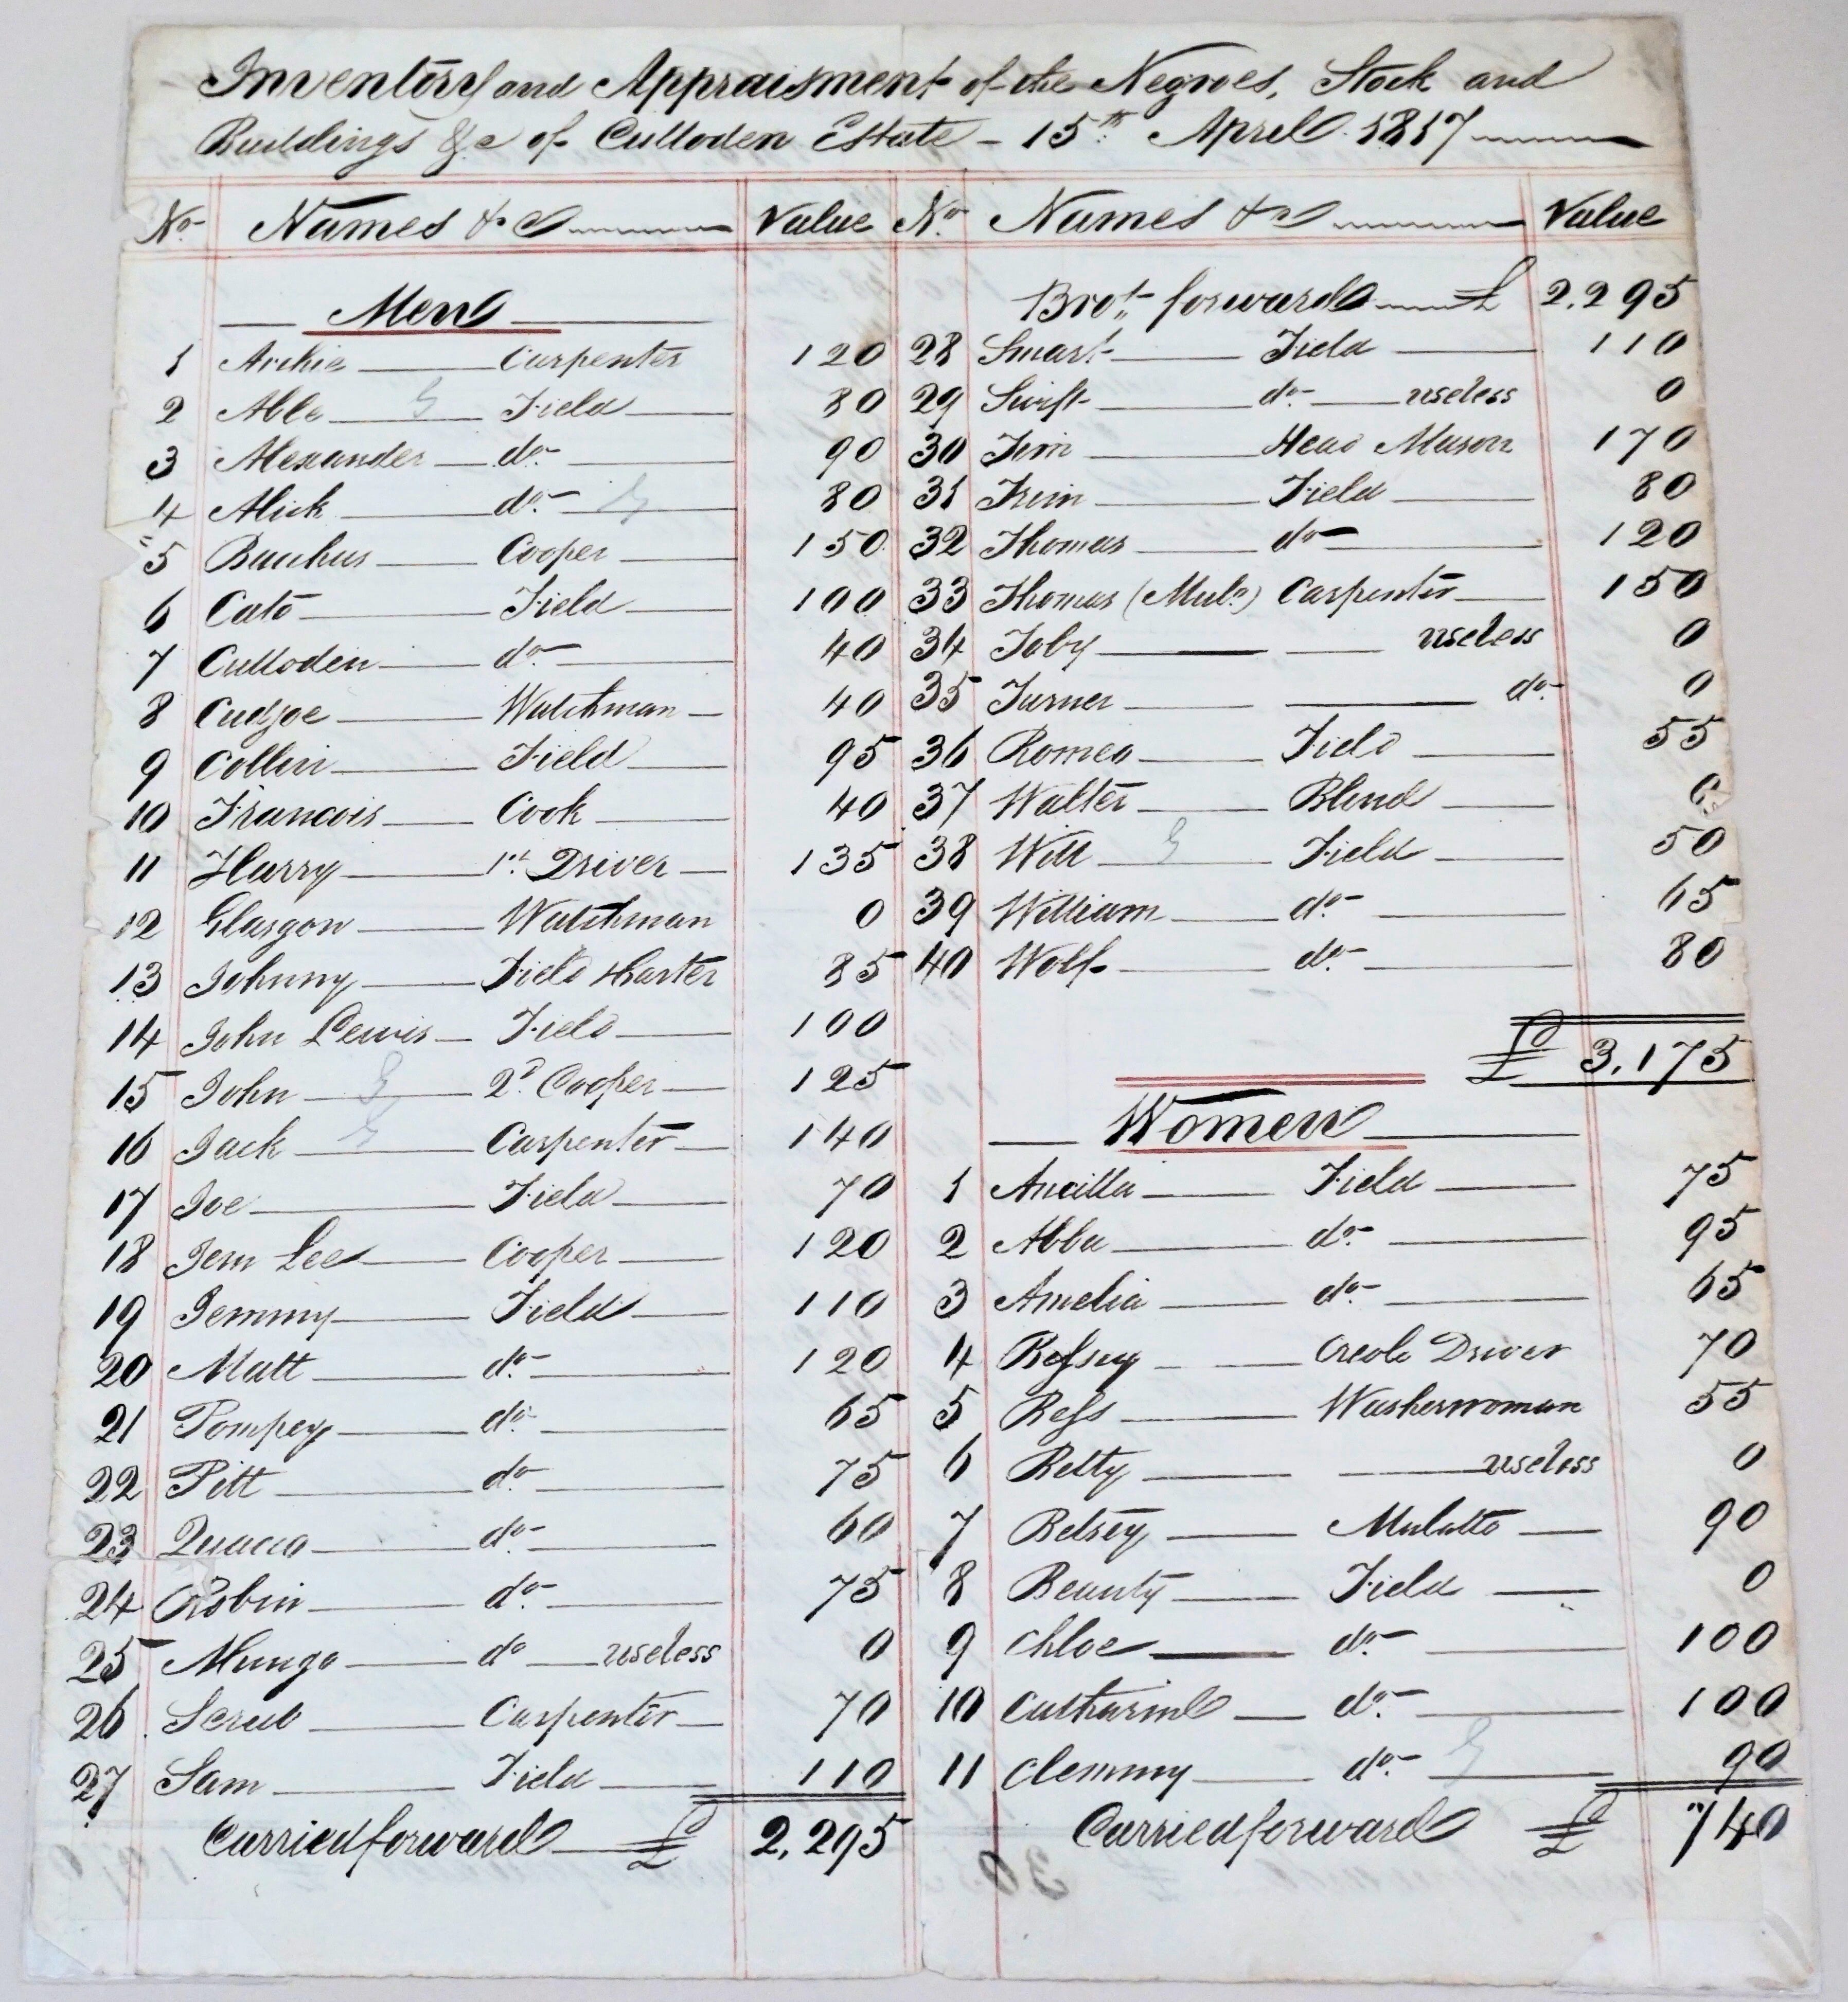 Inventory and Appraisment of the Negroes, Stock and
Buildings &c of Culloden Estate - 15th April 1817
No. Names &c Value
Men
1 Archie Carpenter 120
2 Able Field 80
3 Alexander do. 90
4 Alick do. 80
5 Bacchus Cooper 150
6 Cato Field 100
7 Culloden do. 40
8 Cudjoe Watchman 40
9 Collin Field 95
10 Francois Cook 40
11 Harry 1st. Driver 135
12 Glasgow Watchman 0
13 Johnny Field & Carter 85
14 John Lewis Field 100
15 John 2d. Cooper 125
16 Jack Carpenter 140
17 Joe Field 70
18 Jem Lee Cooper 120
19 Jemmy Field 110
20 Matt do. 120
21 Pompey do. 65
22 Pitt do. 75
23 Quaco do. 60
24 Robin do. 75
25 Mungo do useless 0
26 Scrub Carpenter 70
27 Sam Field 110
Carried forward £ 2,295
No. Names &c Value
Brot. forward £ 2,295
28 Smart Field 110
29 Swift do. useless 0
30 Jim Head Mason 170
31 Trim Field 80
32 Thomas do 120
33 Thomas (Mulo.) Carpenter 150
34 Toby useless 0
35 Turner do. 0
36 Romeo Field 55
37 Walter Blind 0
38 Will Field 50
39 William do. 65
40 Wolf do. 80
£ 3,175
Women
1 Ancilla Field 75
2 Abba do. 95
3 Amelia do. 65
4 Bessey Creole Driver 70
5 Bess Washerwoman 55
6 Betty useless 0
7 Betsey Mulatto 90
8 Beauty Field 0
9 Chloe do. 100
10 Catharine do. 100
11 Clemmy do. 90
Carried forward £ 740